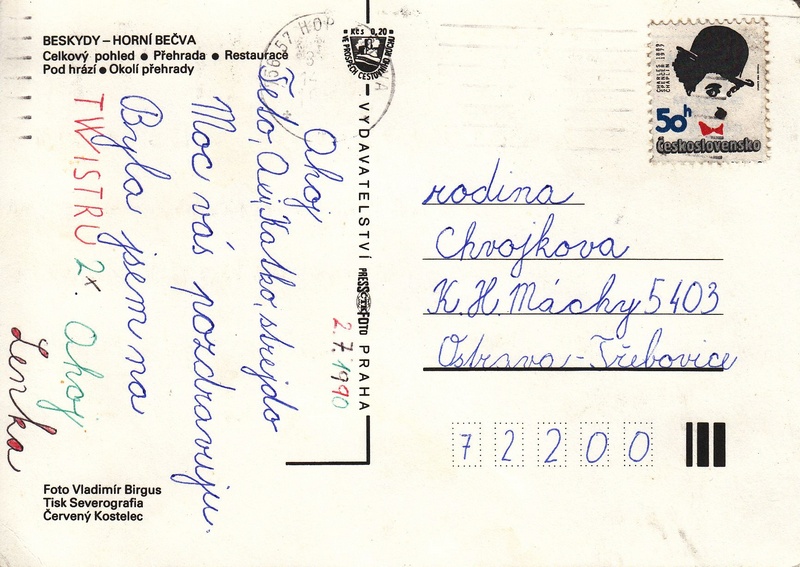 BESKYDY – HORNÍ BEČVA
Celkový pohled ● Přehrada ● Restaurace
Pod hrází ● Okolí přehrady
Ahoj
Teto, Katko, strejdo
Moc vás pozdravuju.
Byla jsem na
TWISTRU 2x. Ahoj
Lenka
2.7.1990
Foto Vladimír Birgus
Tisk Severografia
Červený Kostelec
Kčs 0,20
VE PROSPĚCH CESTOVNÍHO RUCHU
VYDAVATELSTVÍ PRESSFOTO PRAHA
756 57 HOR
CHARLES SPENCER CHAPLIN
1889 1977
50h
Československo
rodina
Chvojkova
K. H. Máchy 5403
Ostrava - Třebovice
72200